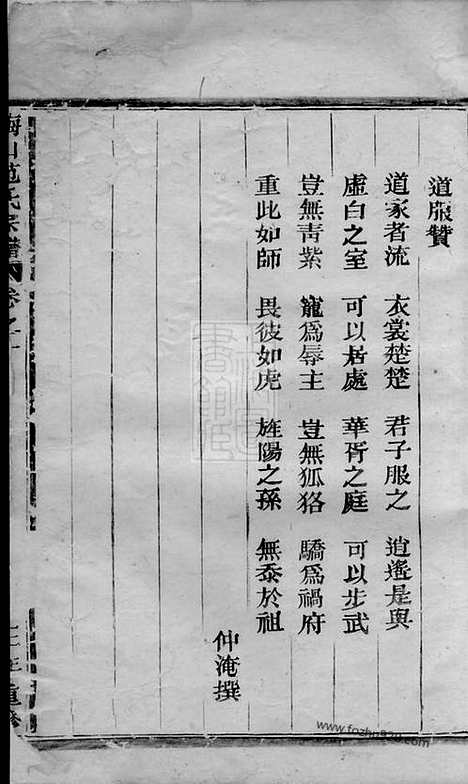 道服贊
道家者流 衣裳楚楚 君子服之 逍遙是與
虛白之室 可以居處 華胥之庭 可以步武
豈無青紫 寵為辱主 豈無狐狢 驕為禍府
重此如師 畏彼如虎 旌陽之孫 無忝於祖
仲淹撰
海山范氏宗譜 卷之一
重修
www.fozhu920.com